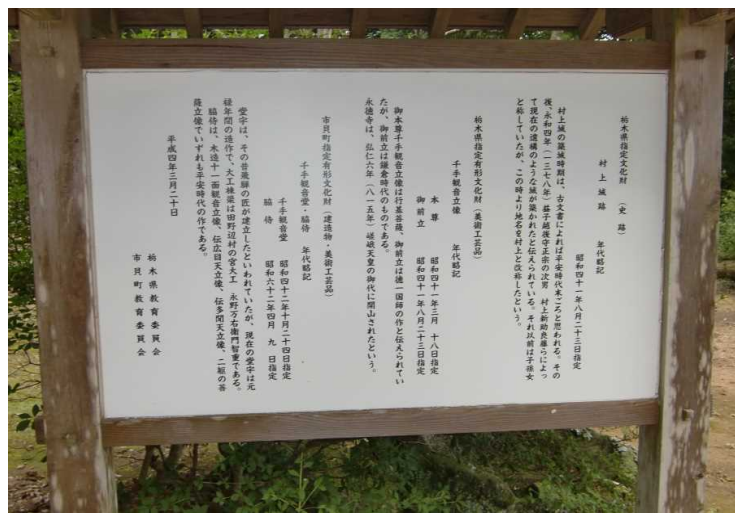 栃木県指定文化財 (史跡)
村上城跡 年代略記
昭和四十一年八月二十三日指定
村上城の築城時期は、古文書によれば平安時代末ごろと思われる。その
後、永和四年(一三七八年)益子越後守正宗の次男 村上新助良藤らによっ
て現在の遺構のような城が築かれたと伝えられている。それ以前は子孫女
と称していたが、この時より地名を村上と改称したという。
栃木県指定有形文化財(美術工芸品)
千手観音立像 年代略記
本尊 昭和四十一年三月 十八日指定
御前立 昭和四十一年八月二十三日指定
御本尊千手観音立像は行基菩薩、御前立は徳一国師の作と伝えられてい
たが、御前立は鎌倉時代のものである。
永徳寺は、弘仁六年(八一五年)嵯峨天皇の御代に開山されたという。
市貝町指定有形文化財(建造物・美術工芸品)
千手観音堂・脇侍 年代略記
千手観音堂 昭和四十二年十月二十四日指定
脇侍 昭和六十二年四月 九 日指定
堂宇は、その昔飛騨の匠が建立したといわれていたが、現在の堂宇は元
禄年間の造作で、大工棟梁は田野辺村の宮大工 永野万右衛門智重である。
脇侍は、木造十一面観音立像、伝広目天立像、伝多聞天立像、二躯の菩
薩立像でいずれも平安時代の作である。
平成四年三月二十日
栃木県教育委員会
市貝町教育委員会